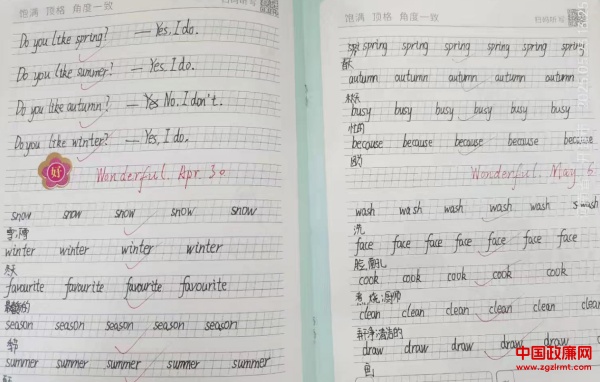 饱满 顶格 角度一致
Do you like spring? — Yes, I do.
Do you like summer? — Yes, I do.
Do you like autumn? — Yes No, I don't.
Do you like winter? — Yes, I do.
好 Wonderful. Apr. 30
snow snow snow snow snow
雪,下雪
winter winter winter winter
冬天
favourite favourite favourite favourite
的
season season season season season
季节
summer summer summer summer summer
饱满 顶格 角度一致 扫码听写
spring spring spring spring spring spring
春天
autumn autumn autumn autumn autumn
秋天
busy busy busy busy busy busy
忙的
because because because because because
因为
Wonderful. May 6
wash wash wash wash wash swash
洗
face face face face face face
脸,面孔
cook cook cook cook cook
煮,烧;厨师
clean clean clean clean clean
干净,清洁的
draw draw draw draw draw
画
中国政廉网
www.zgzlrmt.com